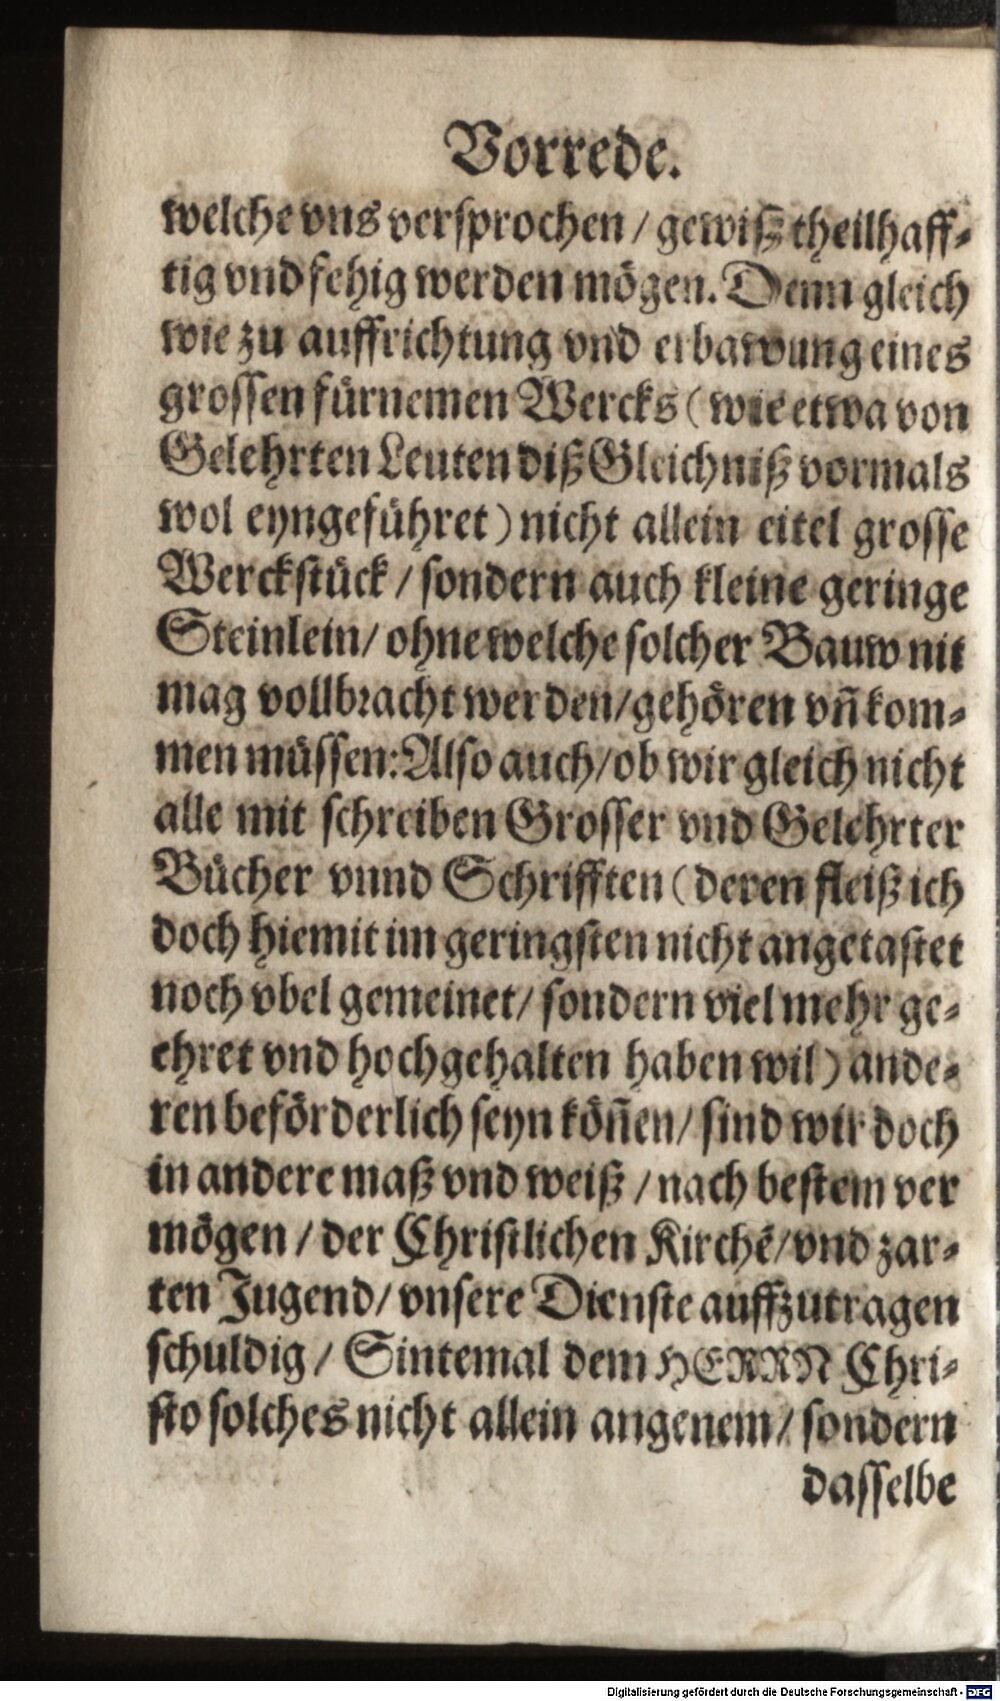 Vorrede.
welche vns versprochen / gewiß theilhaff-
tig vnd fehig werden mögen. Denn gleich
wie zu auffrichtung vnd erbawung eines
grossen fürnemen Wercks ( wie etwa von
Gelehrten Leuten diß Gleichniß vormals
wol eyngeführet ) nicht allein eitel grosse
Werckstück / sondern auch kleine geringe
Steinlein / ohne welche solcher Bauw nit
mag vollbracht werden / gehören vñ kom-
men müssen: Also auch / ob wir gleich nicht
alle mit schreiben Grosser vnd Gelehrter
Bücher vnnd Schrifften ( deren fleiß ich
doch hiemit im geringsten nicht angetastet
noch vbel gemeinet / sondern viel mehr ge-
ehret vnd hochgehalten haben wil ) ande-
ren beförderlich seyn köñen / sind wir doch
in andere maß vnd weiß / nach bestem ver
mögen / der Christlichen Kirchē / vnd zar-
ten Jugend / vnsere Dienste auffzutragen
schuldig / Sintemal dem HERRN Chri-
sto solches nicht allein angenem / sondern
dasselbe
Digitalisierung gefördert durch die Deutsche Forschungsgemeinschaft - DFG